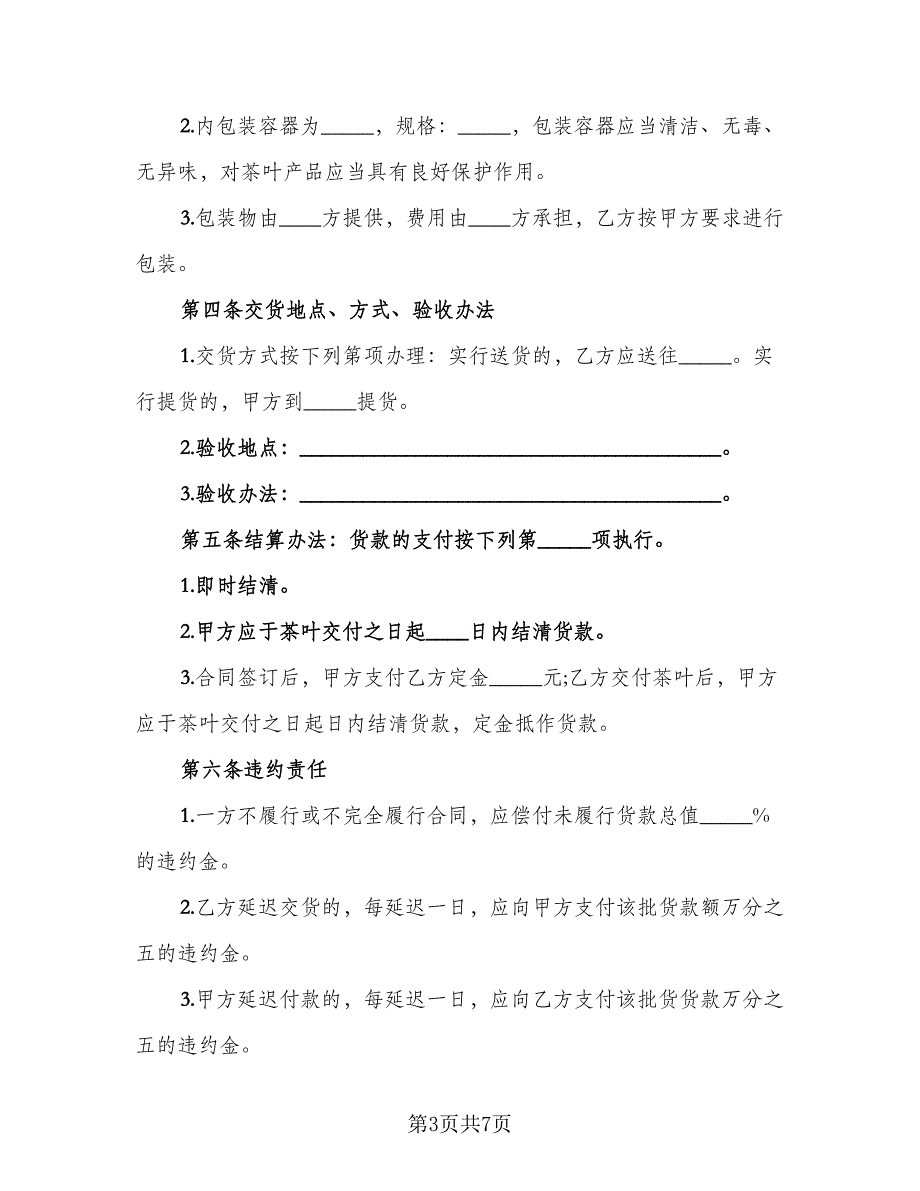 2.内包装容器为_____，规格：_____，包装容器应当清洁、无毒、
无异味，对茶叶产品应当具有良好保护作用。
3.包装物由____方提供，费用由____方承担，乙方按甲方要求进行
包装。
第四条交货地点、方式、验收办法
1.交货方式按下列第项办理：实行送货的，乙方应送往_____。实
行提货的，甲方到_____提货。
2.验收地点：________________________________________。
3.验收办法：________________________________________。
第五条结算办法：货款的支付按下列第_____项执行。
1.即时结清。
2.甲方应于茶叶交付之日起____日内结清货款。
3.合同签订后，甲方支付乙方定金_____元;乙方交付茶叶后，甲方
应于茶叶交付之日起日内结清货款，定金抵作货款。
第六条违约责任
1.一方不履行或不完全履行合同，应偿付未履行货款总值_____%
的违约金。
2.乙方延迟交货的，每延迟一日，应向甲方支付该批货款额万分之
五的违约金。
3.甲方延迟付款的，每延迟一日，应向乙方支付该批货货款万分之
五的违约金。
第3页共7页